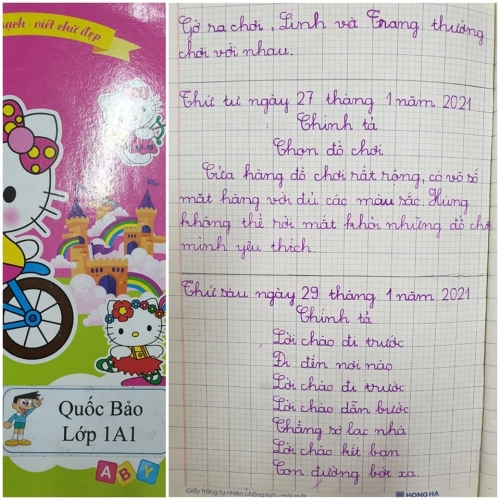 sạch - viết chữ đẹp
Quốc Bảo
Lớp 1A1
A B Y
Giờ ra chơi, Linh và Trang thường
chơi với nhau.
Thứ tư ngày 27 tháng 1 năm 2021
Chính tả
Chọn đồ chơi
Cửa hàng đồ chơi rất rộng, có vô số
mặt hàng với đủ các màu sắc. Hùng
không thể rời mắt khỏi những đồ chơi
mình yêu thích.
Thứ sáu ngày 29 tháng 1 năm 2021
Chính tả
Lời chào đi trước
Đi đến nơi nào
Lời chào đi trước
Lời chào dẫn bước
Chẳng sợ lạc nhà
Lời chào kết bạn
Con đường bớt xa.
Giấy trắng tự nhiên chống loá
HONG HA